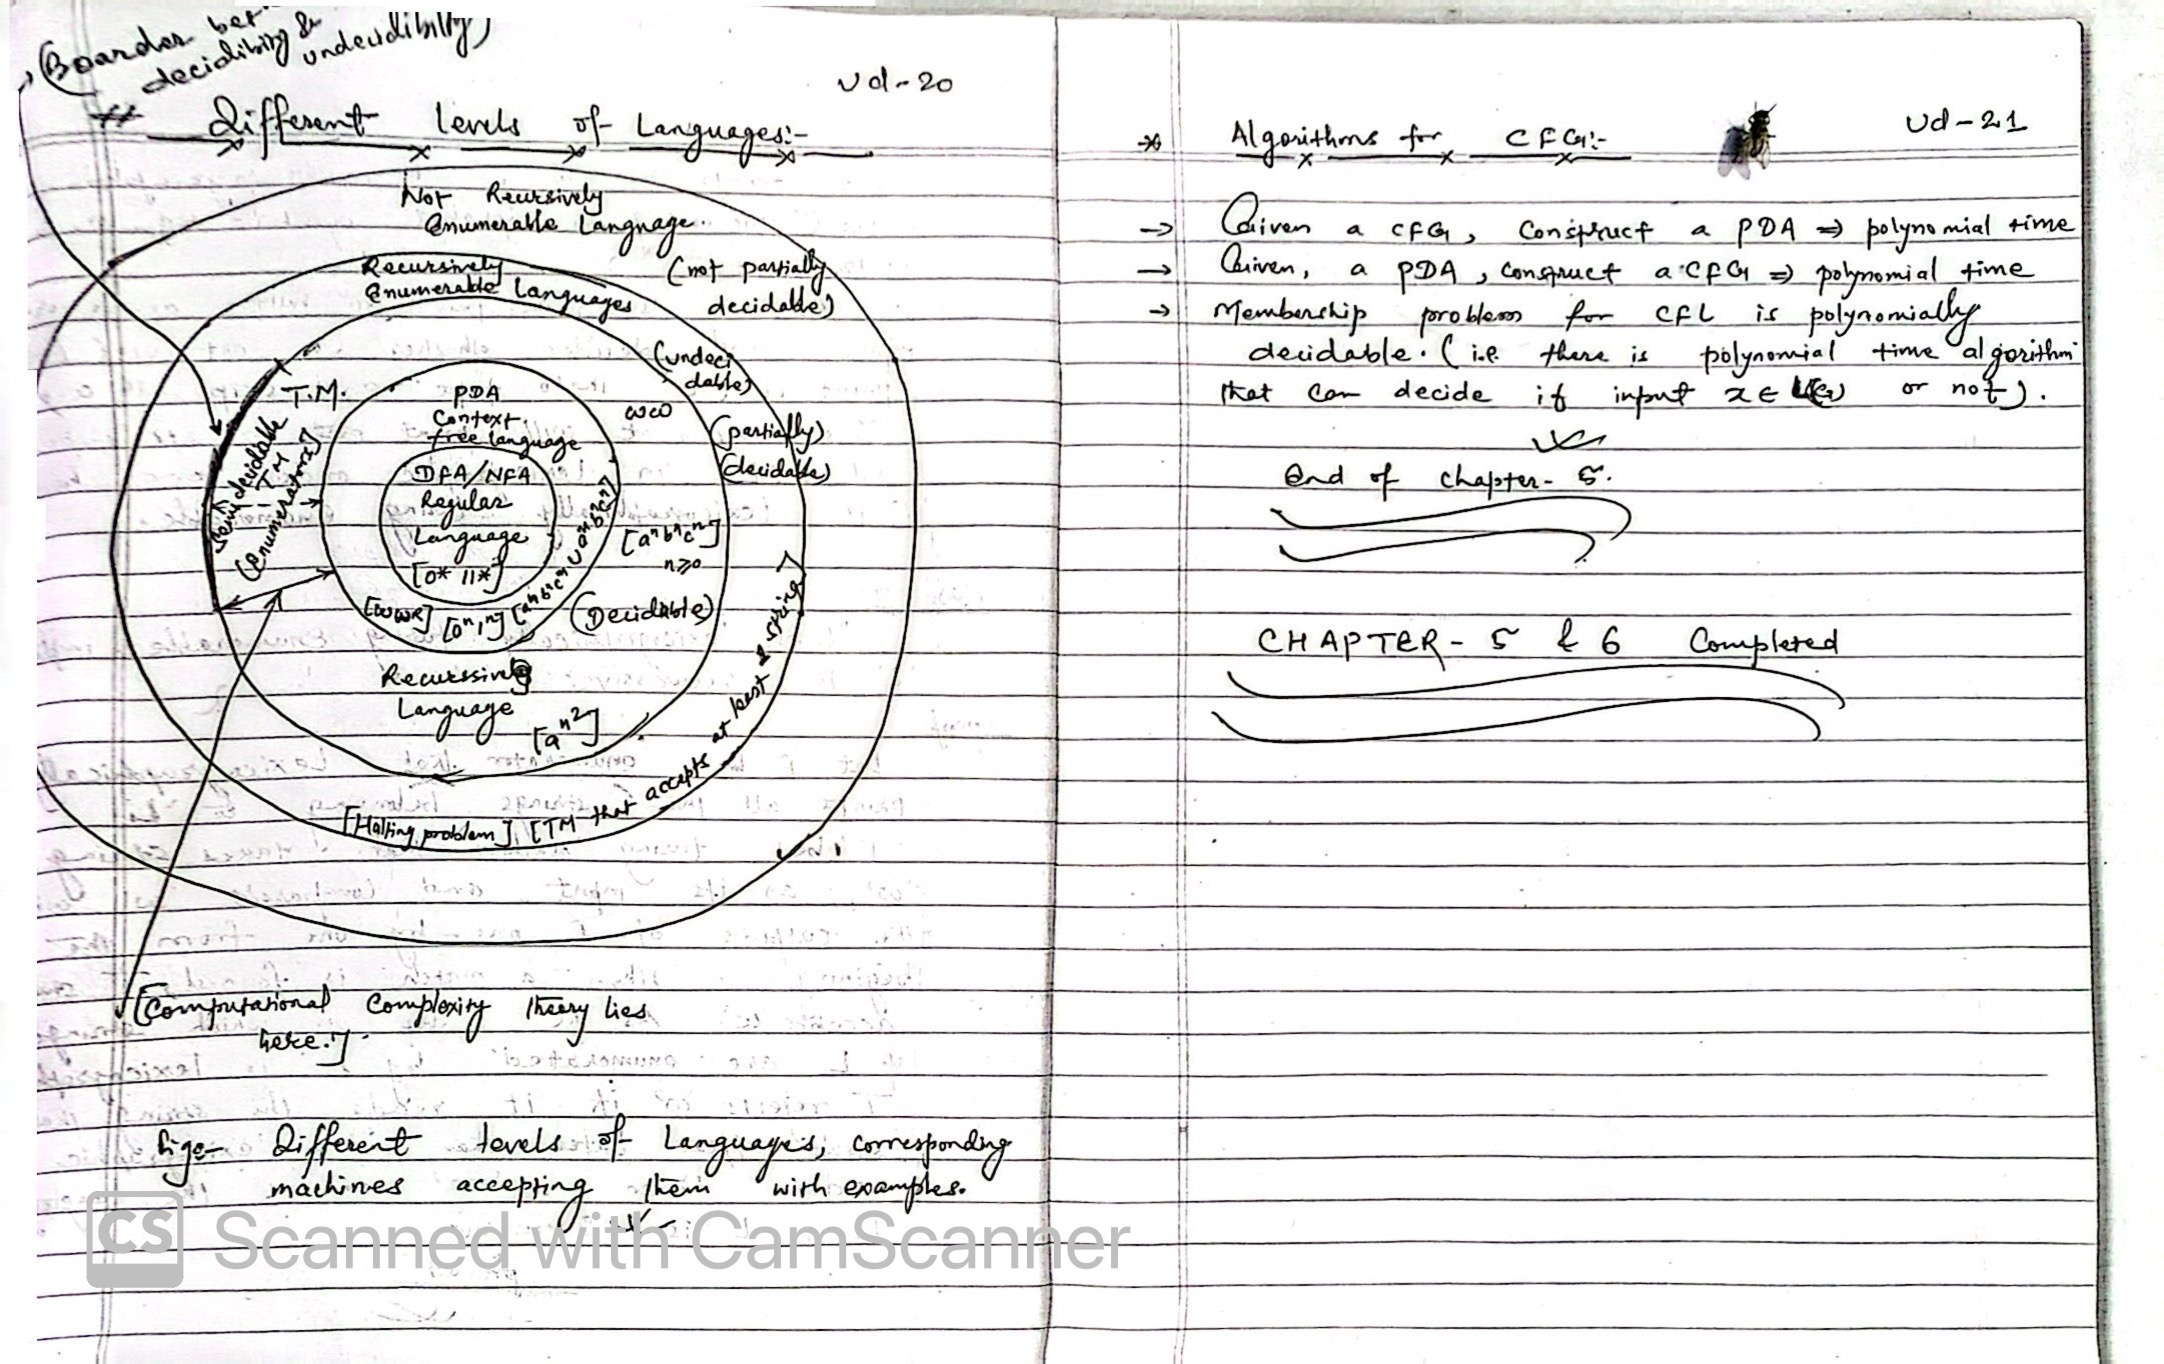 (Boarder bet^n
decidibility &
undecidibility)
Ud-20
** Different levels of Languages:-
Not Recursively
Enumerable Language
(not partially
decidable)
Recursively
Enumerable Languages
(undeci
dable)
(partially)
(decidable)
T.M.
ww
PDA
Context
free language
DFA/NFA
Regular
Language
[0* 11*]
[wwR] [0^n 1^n] [a^n b^n c^m ∪ a^n b^m c^n]
Semidecidable
TM
(Enumerators)
[a^n b^n c^n]
n≥0
(Decidable)
Recurssive
Language
[a^n2]
[Halting problem], [TM that accepts at least 1 string]
[Computational Complexity theory lies
here.]
fig:- Different levels of Languages, corresponding
machines accepting them with examples.
CS Scanned with CamScanner
Ud-21
* Algorithms for CFG:-
→ Given a CFG, construct a PDA ⇒ polynomial time
→ Given, a PDA, construct a CFG ⇒ polynomial time
→ Membership problem for CFL is polynomially
decidable. (i.e. there is polynomial time algorithm
that can decide if input x ∈ L(G) or not).
End of chapter-5.
CHAPTER-5 & 6 Completed